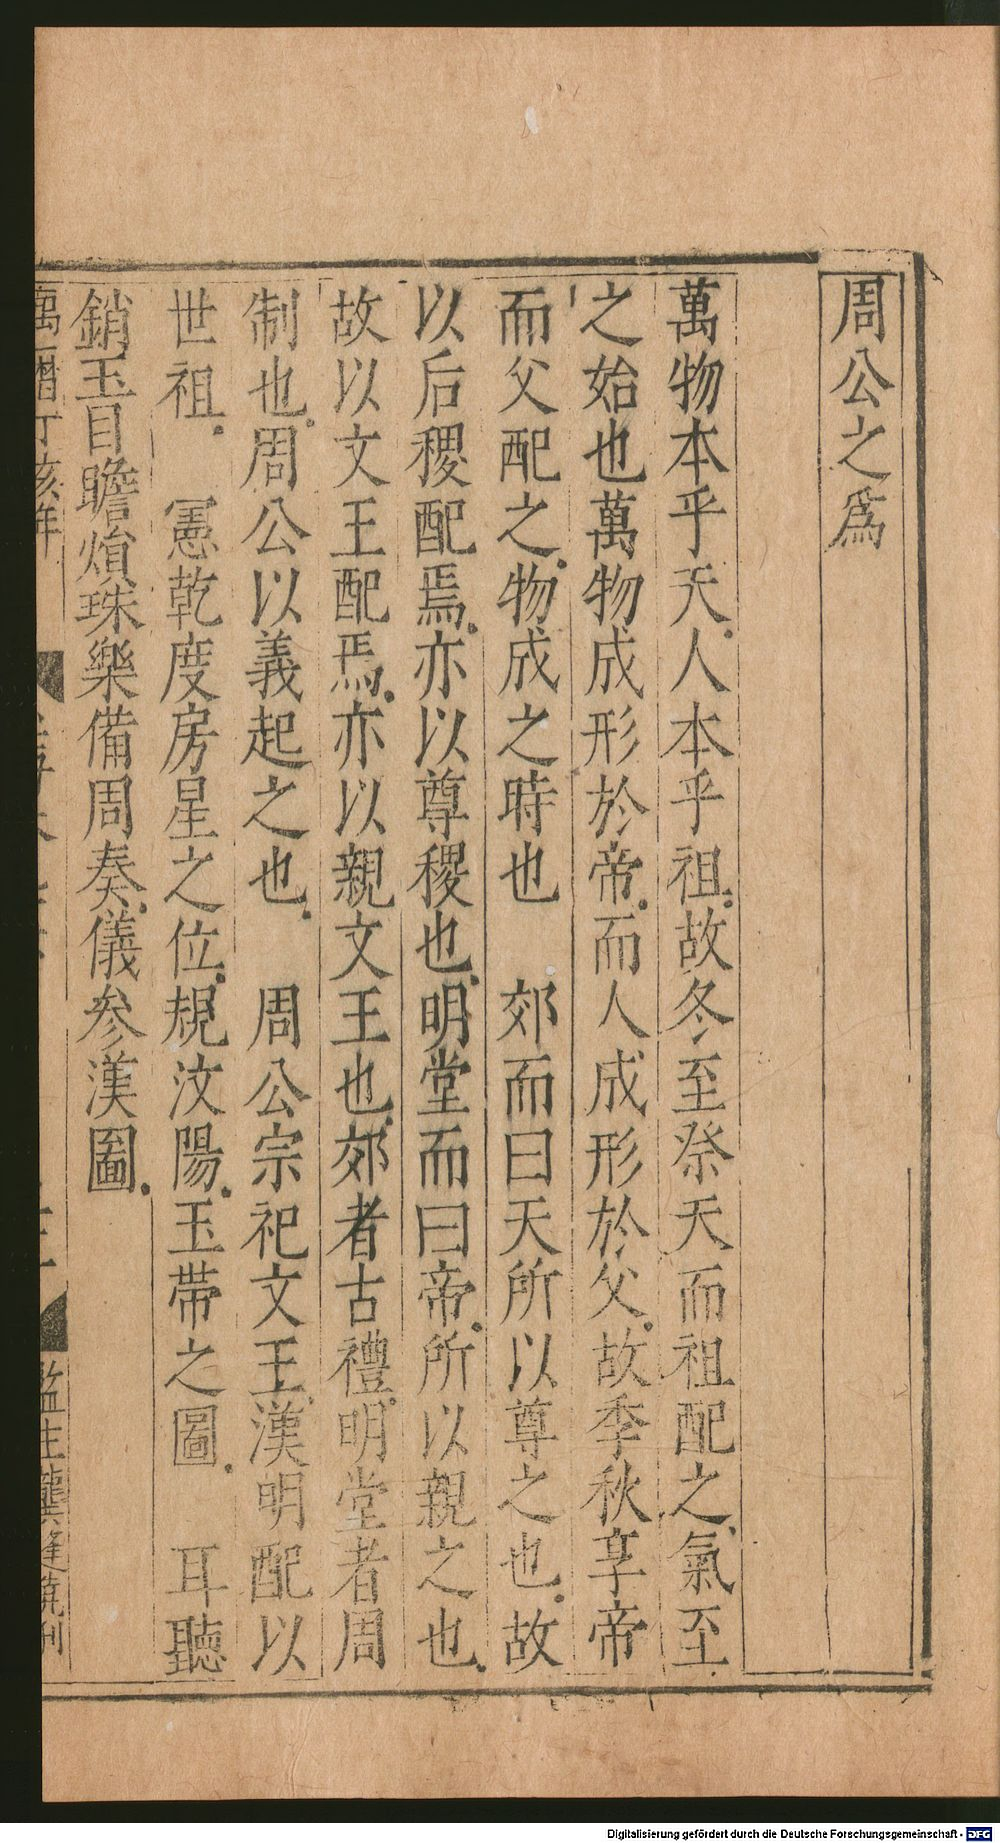 周公之爲
萬物本乎天人本乎祖故冬至祭天而祖配之氣至
之始也萬物成形於帝而人成形於父故季秋享帝
而父配之物成之時也　郊而曰天所以尊之也故
以后稷配焉亦以尊稷也明堂而曰帝所以親之也
故以文王配焉亦以親文王也郊者古禮明堂者周
制也周公以義起之也　周公宗祀文王漢明配以
世祖　憲乾度房星之位規汶陽玉帶之圖　耳聽
銷玉目瞻煩珠樂備周奏儀参漢圖
萬曆丁亥年
監生龔逢堯刊
Digitalisierung gefördert durch die Deutsche Forschungsgemeinschaft - DFG